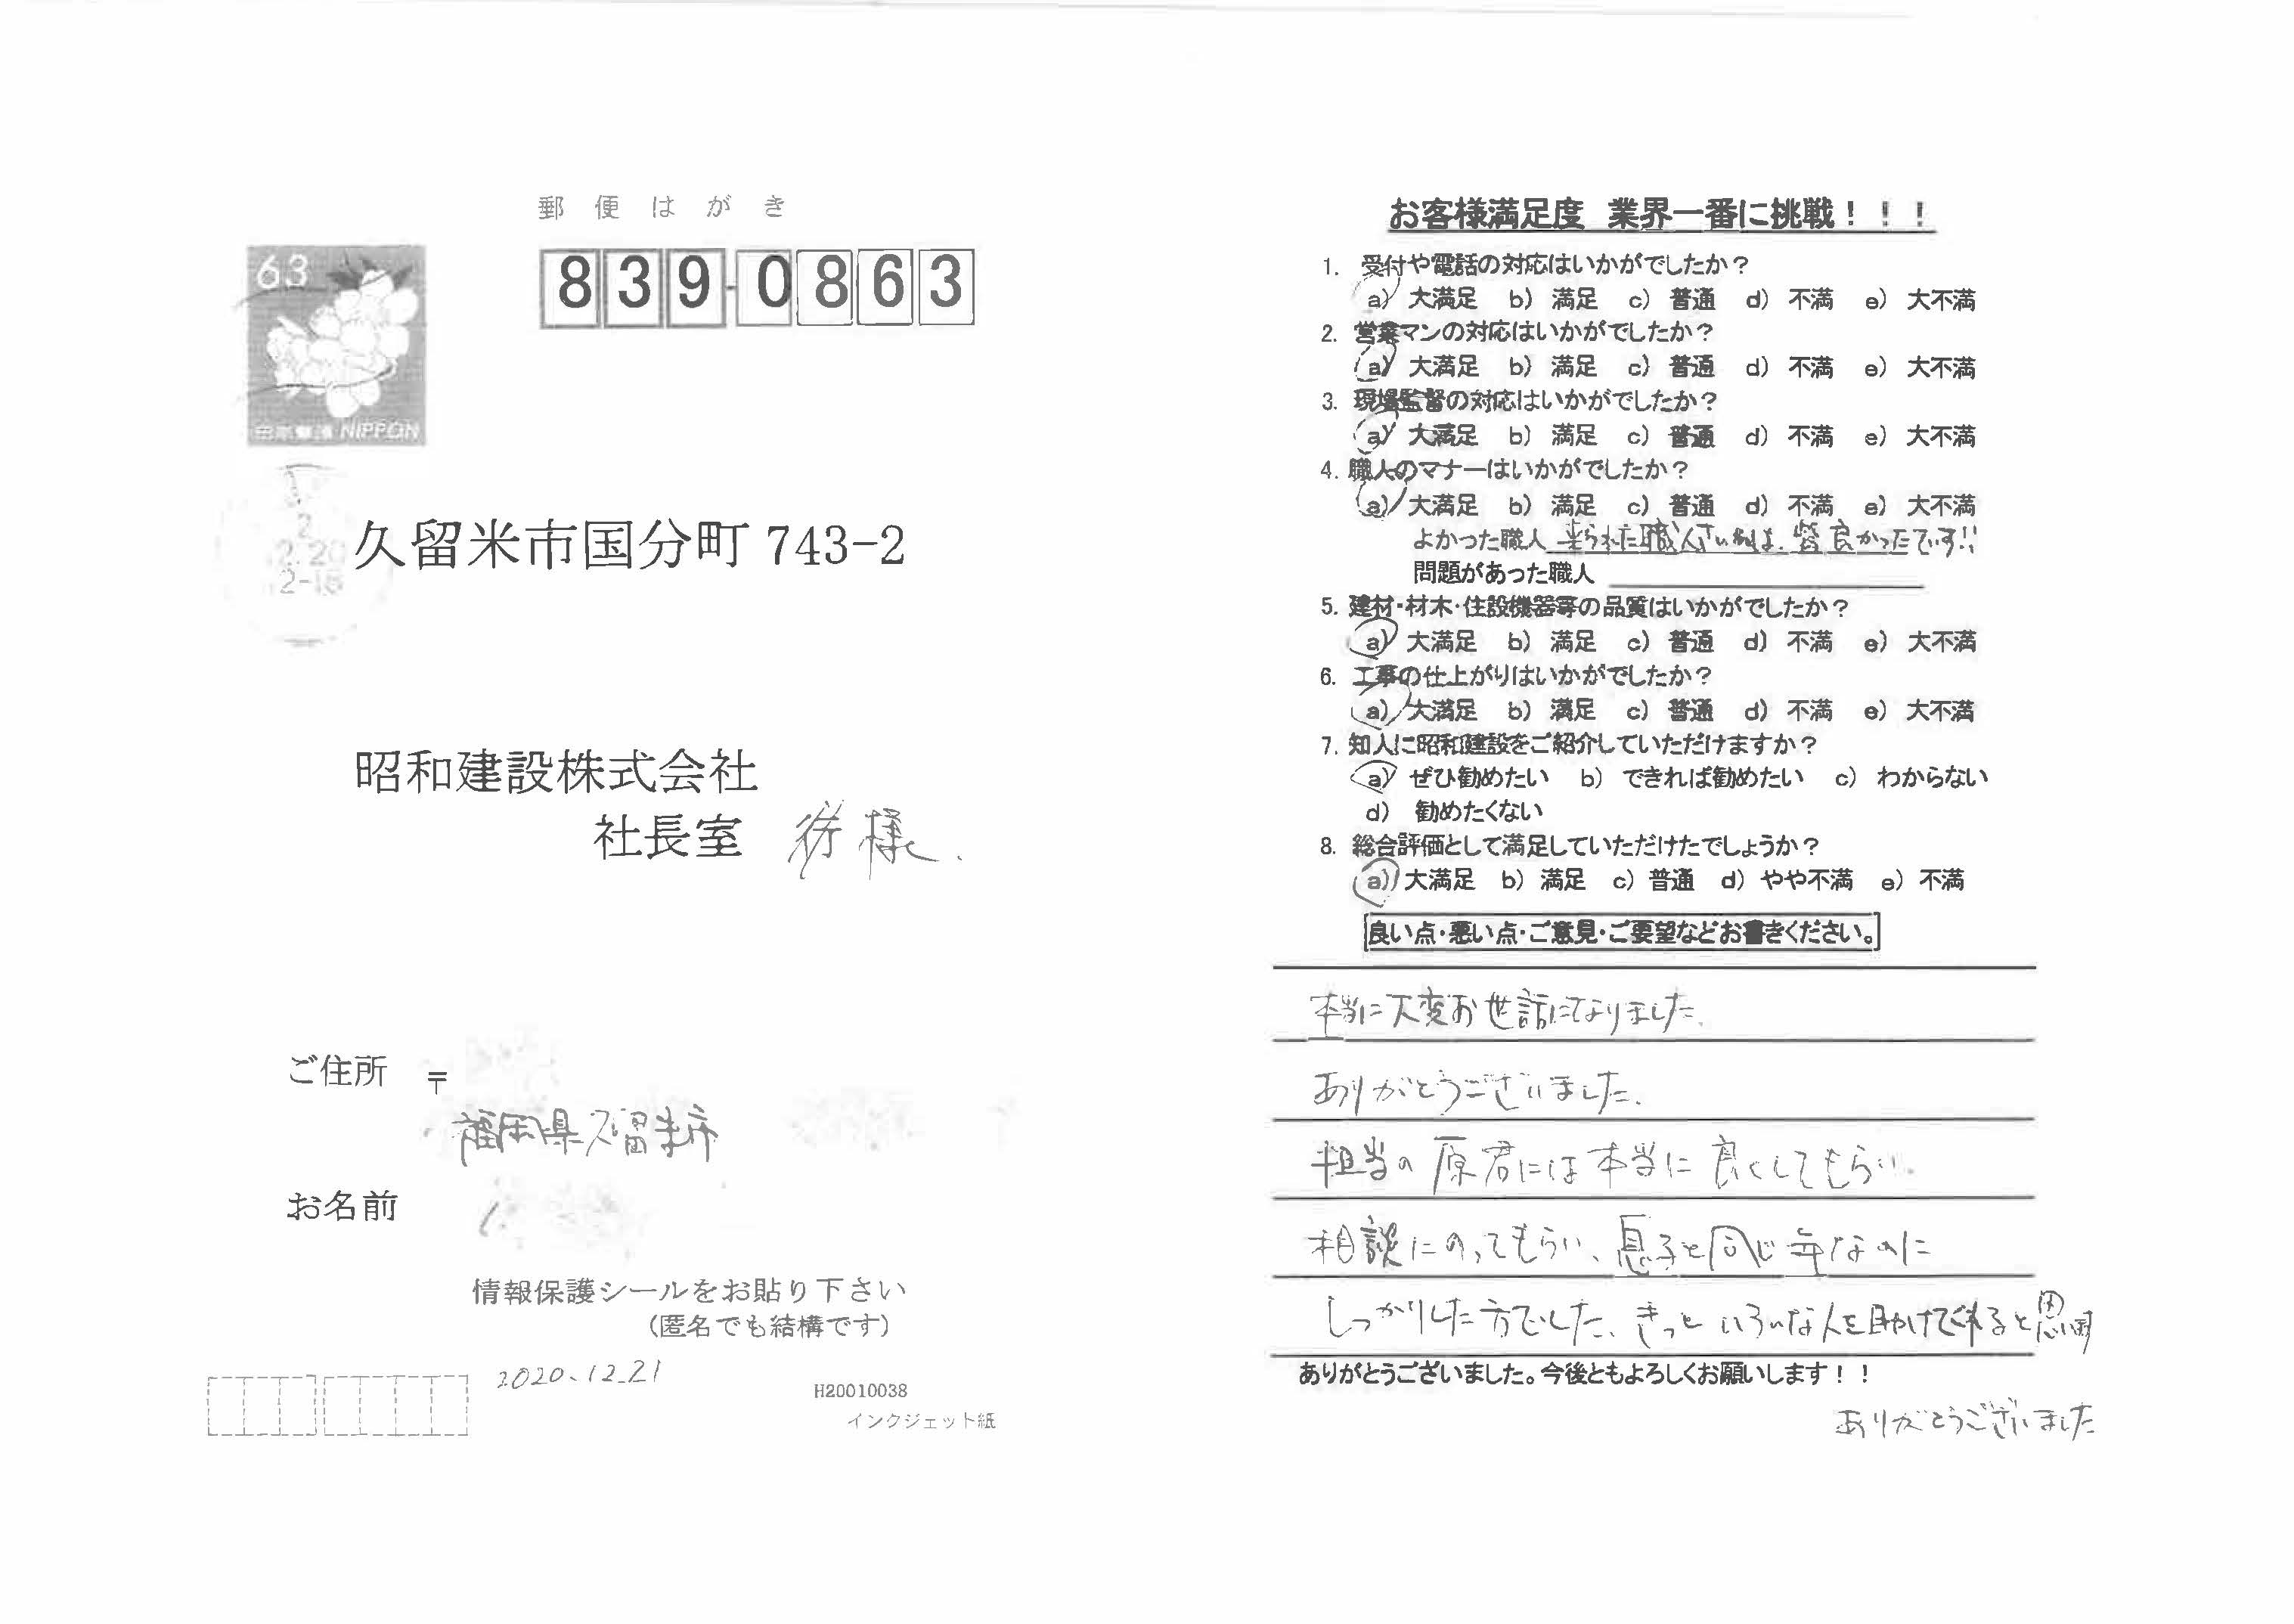 郵便はがき
63
日本郵便 NIPPON
839-0863
久留米市国分町 743-2
昭和建設株式会社
社長室 様
ご住所 〒
福岡県久留米市
お名前
情報保護シールをお貼り下さい
(匿名でも結構です)
2020.12.21
H20010038
インクジェット紙
お客様満足度 業界一番に挑戦！！！
1. 受付や電話の対応はいかがでしたか？
a) 大満足 b) 満足 c) 普通 d) 不満 e) 大不満
2. 営業マンの対応はいかがでしたか？
a) 大満足 b) 満足 c) 普通 d) 不満 e) 大不満
3. 現場監督の対応はいかがでしたか？
a) 大満足 b) 満足 c) 普通 d) 不満 e) 大不満
4. 職人のマナーはいかがでしたか？
a) 大満足 b) 満足 c) 普通 d) 不満 e) 大不満
よかった職人 来られた職人さん達は、皆良かったです!!
問題があった職人
5. 建材・材木・住設機器等の品質はいかがでしたか？
a) 大満足 b) 満足 c) 普通 d) 不満 e) 大不満
6. 工事の仕上がりはいかがでしたか？
a) 大満足 b) 満足 c) 普通 d) 不満 e) 大不満
7. 知人に昭和建設をご紹介していただけますか？
a) ぜひ勧めたい b) できれば勧めたい c) わからない
d) 勧めたくない
8. 総合評価として満足していただけたでしょうか？
a) 大満足 b) 満足 c) 普通 d) やや不満 e) 不満
良い点・悪い点・ご意見・ご要望などお書きください。
本当に大変お世話になりました。
ありがとうございました。
担当の原君には本当に良くしてもらい。
相談にのってもらい、息子と同じ年なのに
しっかりした方でした、きっといろいな人を助けてくれると思います
ありがとうございました。今後ともよろしくお願いします！！
ありがとうございました